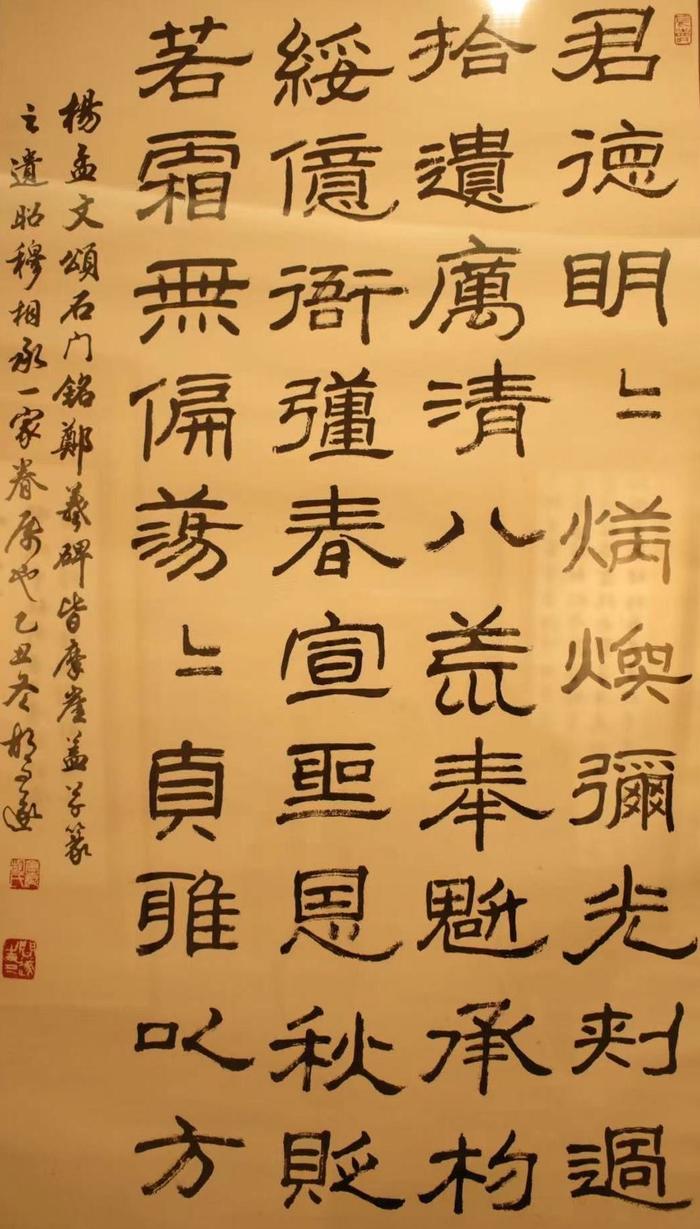 君德明〻煥煥彌光刺過
拾遺厲清八荒奉魁承杓
綏億衙彊春宣聖恩秋貶
若霜無偏蕩〻貞雅以方
楊孟文頌石门銘鄭羲碑皆摩崖蓋草篆
之遺昭穆相承一家眷属也乙丑冬